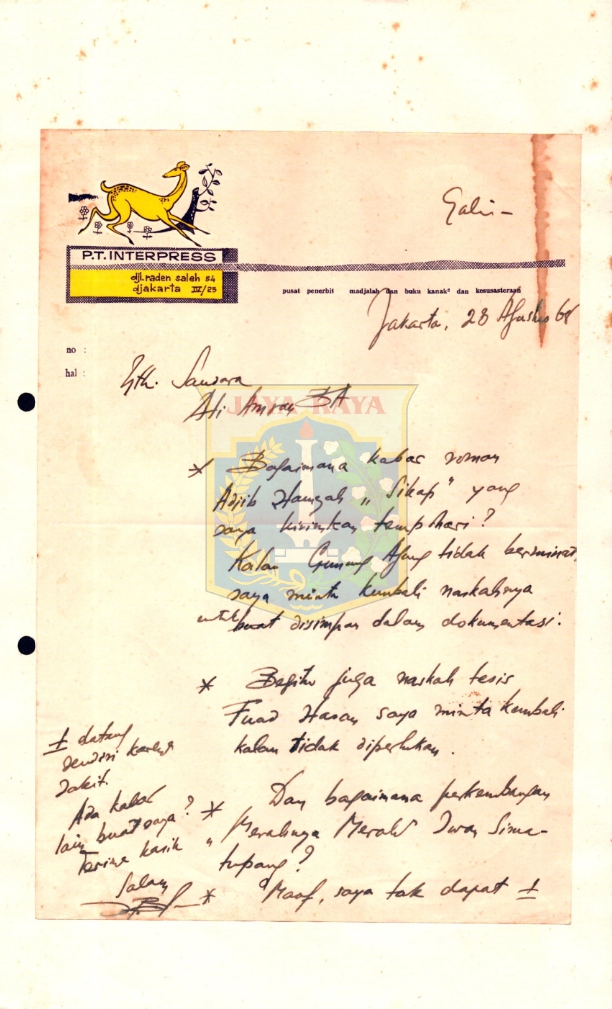 P.T. INTERPRESS
djl. raden saleh 54
djakarta IV/25
pusat penerbit madjalah dan buku kanak² dan kesusasteraan
Jakarta, 28 Agustus 68
no :
hal :
Yth. Saudara
Ali Amran BA
JAYA RAYA
* Bagaimana kabar roman
Adjib Hamzah „Sikap" yang
saya kirimkan temphari?
Kalau Gunung Agung tidak berminat
saya minta kembali naskahnya
untuk buat disimpan dalam dokumentasi.
* Begitu juga naskah tesis
Fuad Hasan saya minta kembali
kalau tidak diperlukan.
* Dan bagaimana perkembangan
„Merahnya Merah" Iwan Sima-
tupang?
* Maaf, saya tak dapat ±
± datang
sendiri karena
sakit.
Ada kabar
lain buat saya?
Terima kasih
Salam